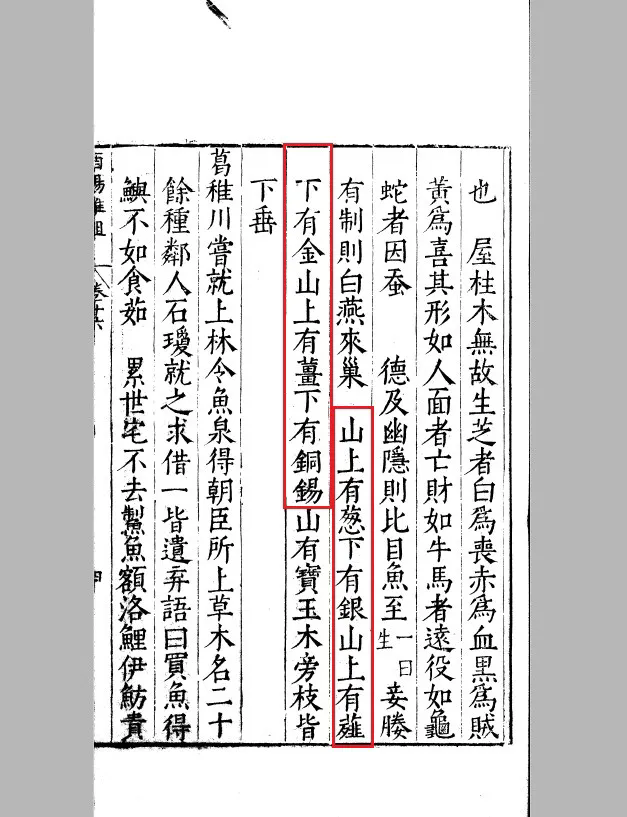 也　屋柱木無故生芝者白爲喪赤爲血黒爲賊
黃爲喜其形如人面者亡財如牛馬者遠役如龜
蛇者因蚕　德及幽隱則比目魚至一日生妾媵
有制則白燕來巢　山上有葱下有銀山上有薤
下有金山上有薑下有銅錫山有寶玉木旁枝皆
下垂
葛稚川嘗就上林令魚泉得朝臣所上草木名二十
餘種鄰人石瓊就之求借一皆遺弃語曰買魚得
鱮不如食茹　累世宅不去鱉魚額洛鯉伊魴貴
酉陽雜俎　卷十六